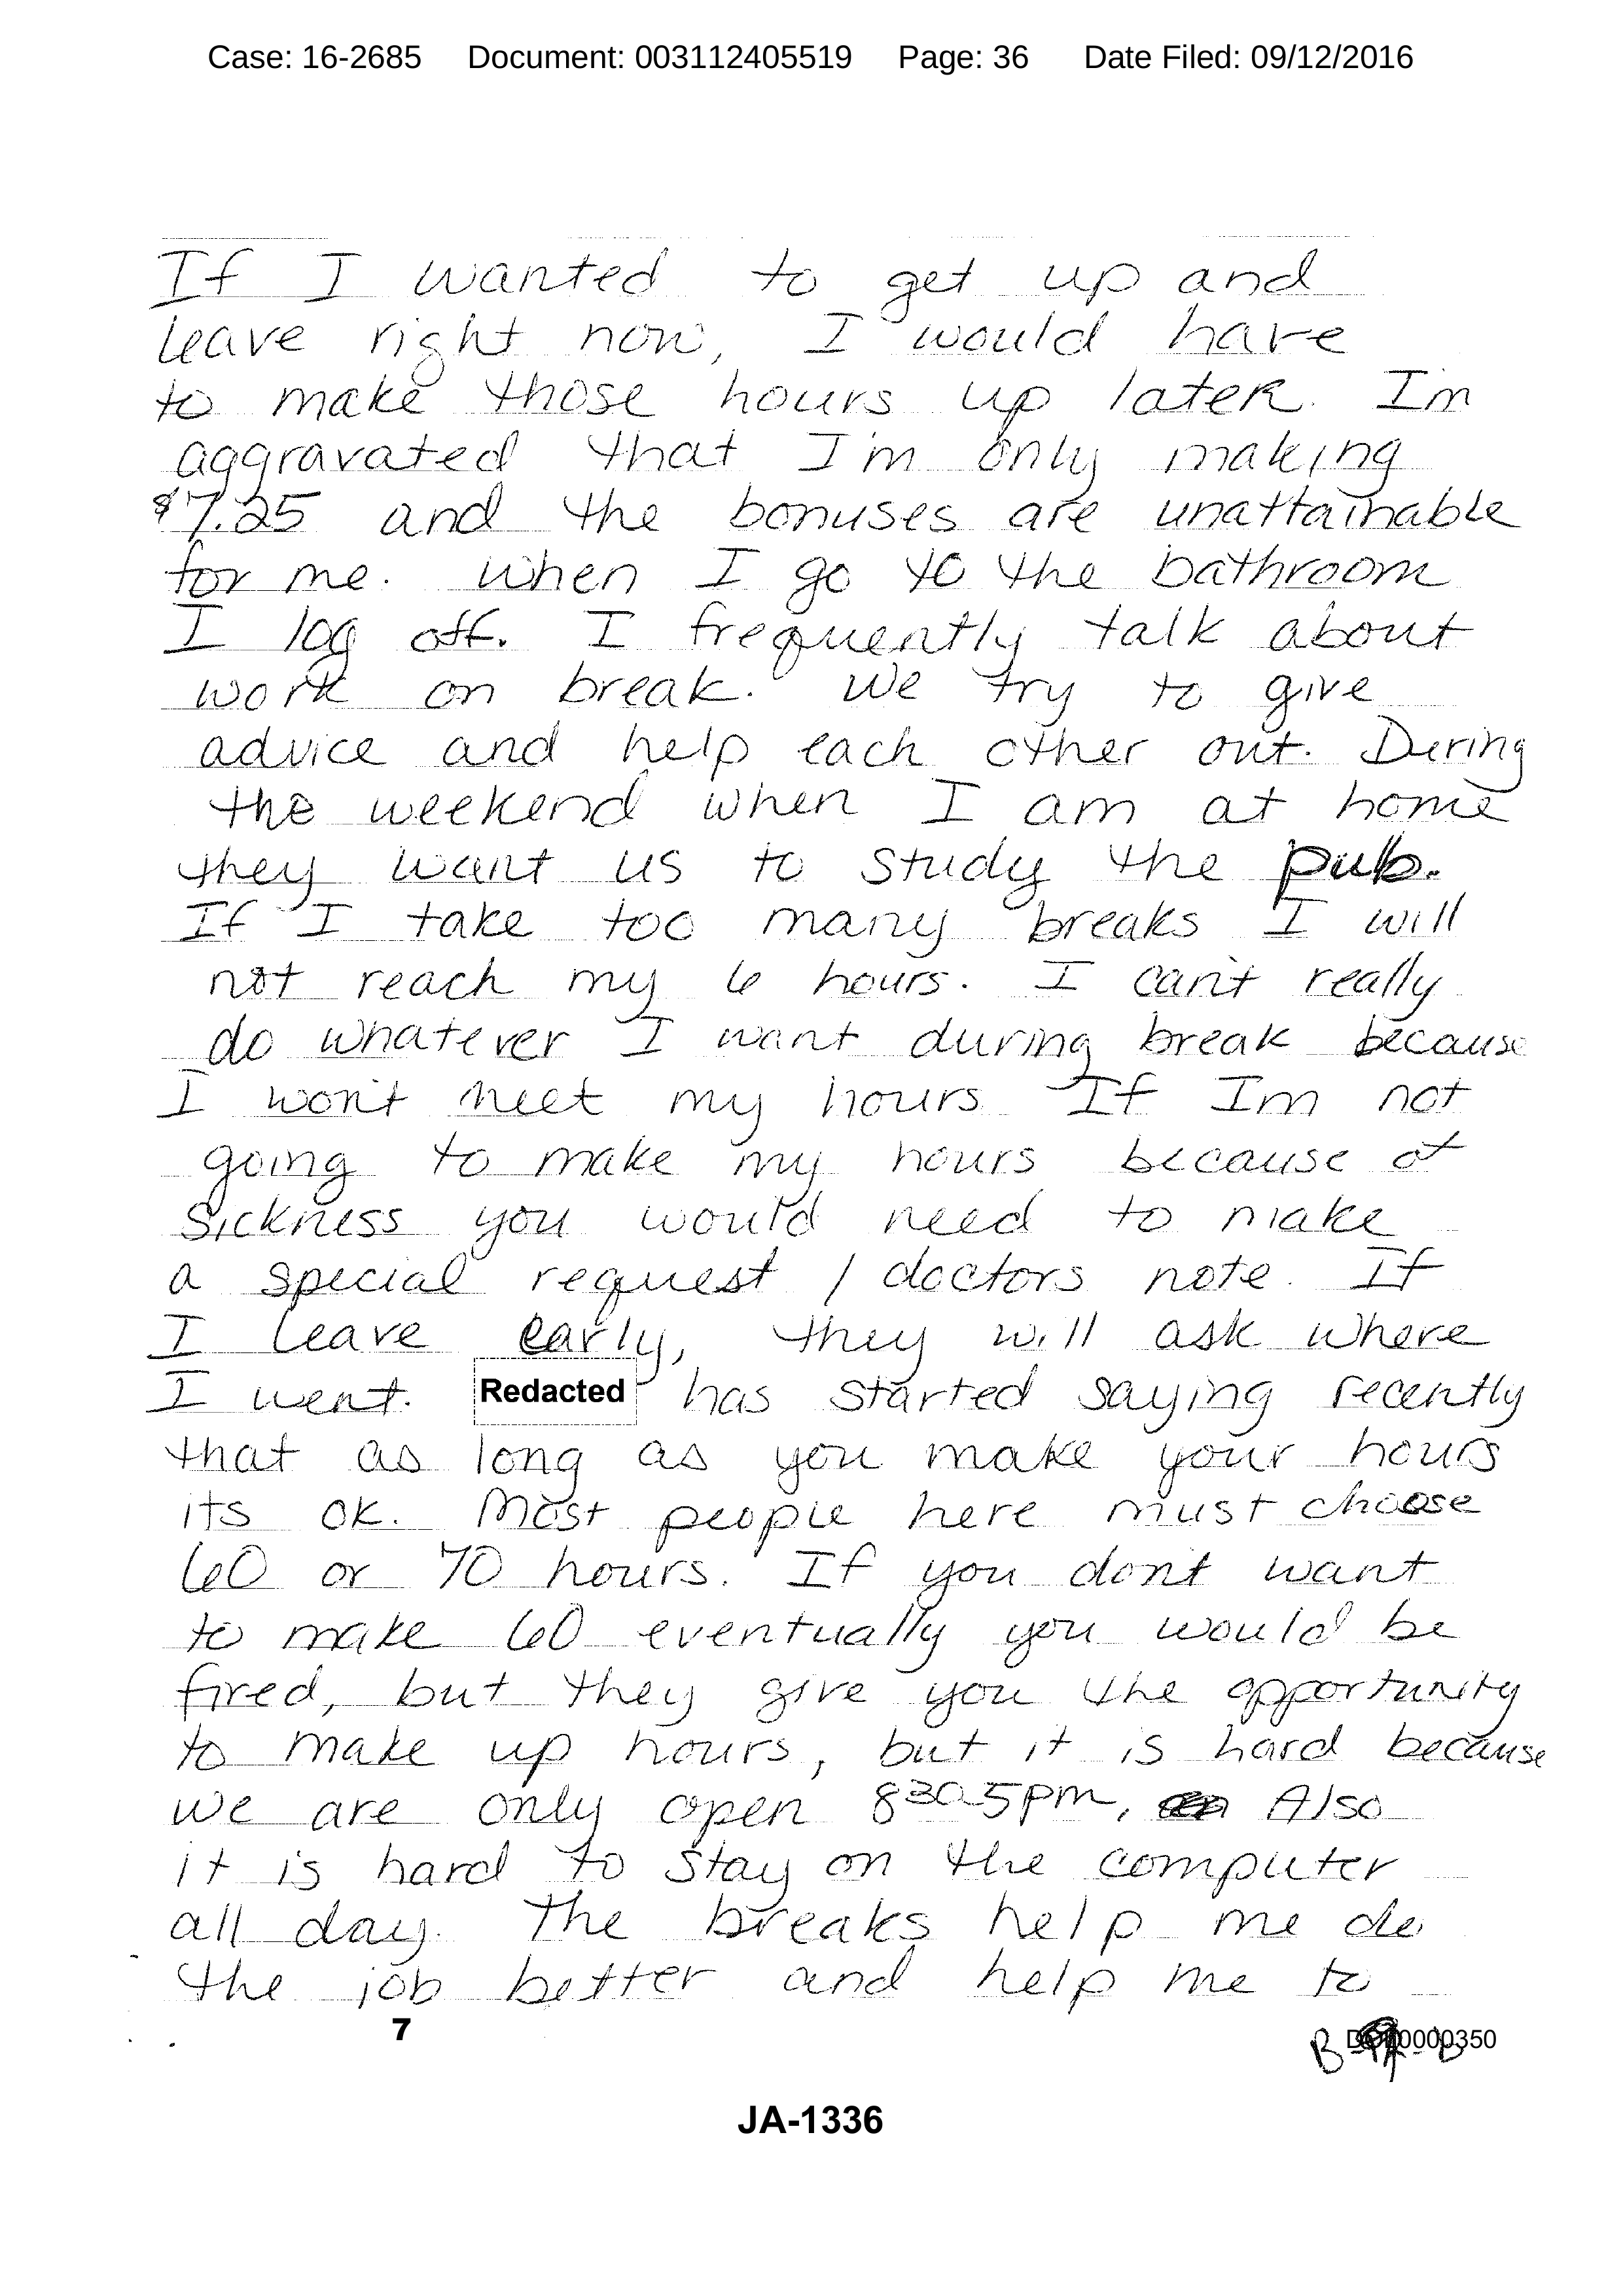 Case: 16-2685 Document: 003112405519 Page: 36 Date Filed: 09/12/2016
If I wanted to get up and
leave right now, I would have
to make those hours up later. Im
aggravated that I'm only making
$7.25 and the bonuses are unattainable
for me. When I go to the bathroom
I log off. I frequently talk about
work on break. We try to give
advice and help each other out. During
the weekend when I am at home
they want us to study the pub.
If I take too many breaks I will
not reach my 6 hours. I can't really
do whatever I want during break because
I won't meet my hours If Im not
going to make my hours because of
sickness you would need to make
a special request / doctors note. If
I leave early, they will ask where
I went. Redacted has started saying recently
that as long as you make your hours
its ok. Most people here must choose
60 or 70 hours. If you don't want
to make 60 eventually you would be
fired, but they give you the opportunity
to make up hours, but it is hard because
we are only open 830-5pm, Also
it is hard to stay on the computer
all day. The breaks help me do
the job better and help me to
7
0000350
JA-1336